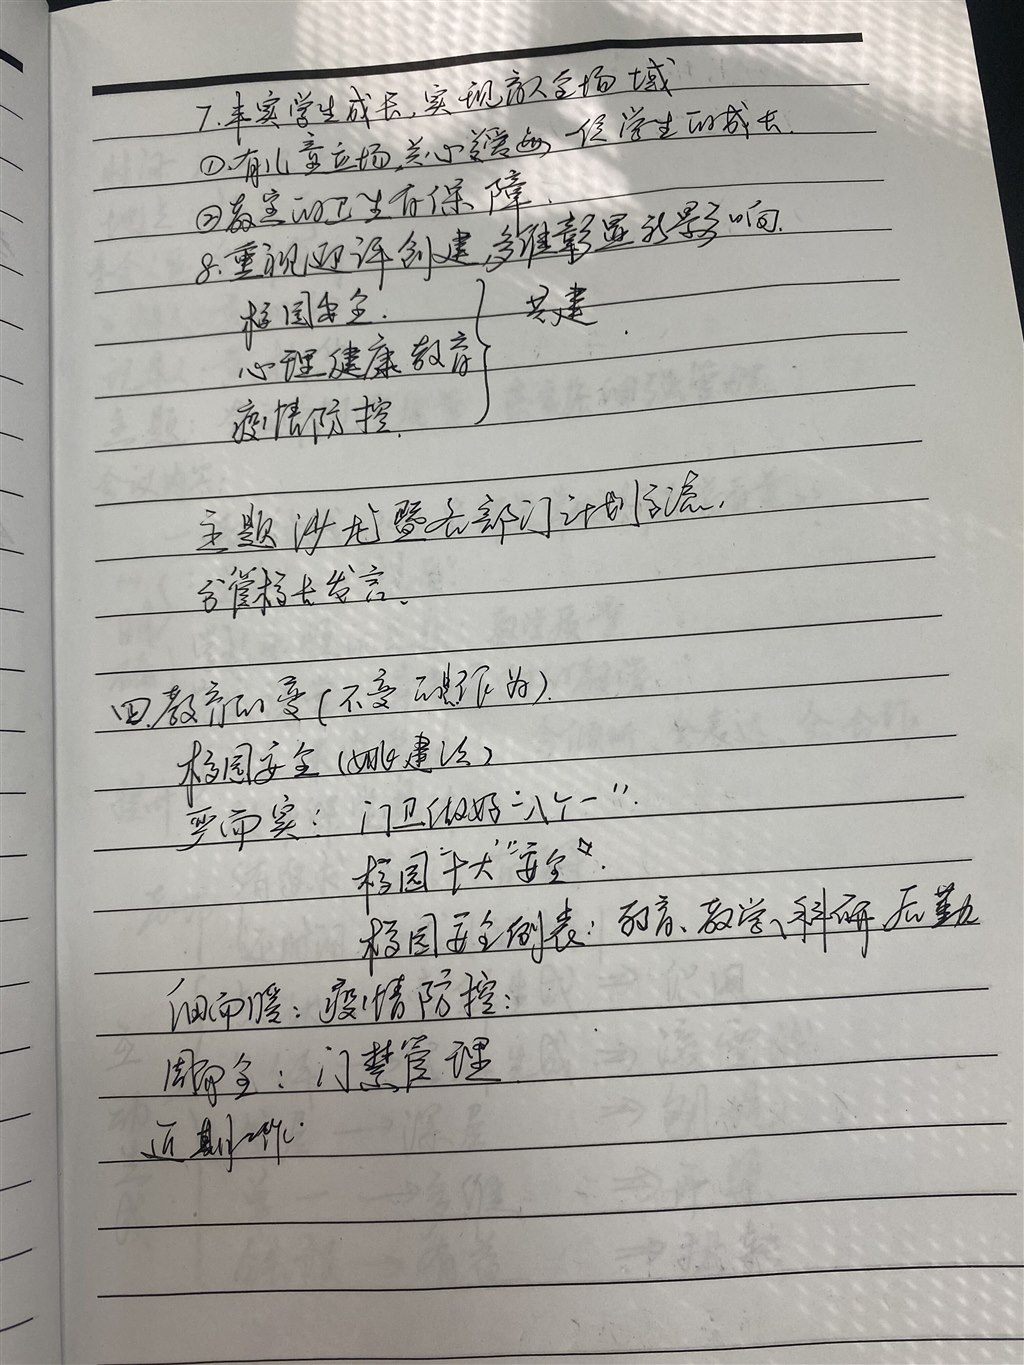 7.丰实学生成长,实现育人全场域
①有儿童立场,关心关爱每 促学生的成长.
②教室的卫生有保障.
8.重视迎评创建,多维彰显新影响.
校园安全.
心理健康教育
疫情防控.
共建.
主题沙龙暨各部门计划交流,
分管校长发言.
四.教育的变(不变的是作为).
校园安全(姚建法)
严而实: 门卫做好“八个一”.
校园“十大”“安全”.
校园安全例表: 教育、教学、科研 后勤
细而暖: 疫情防控:
周而全: 门禁管理
近期工作: